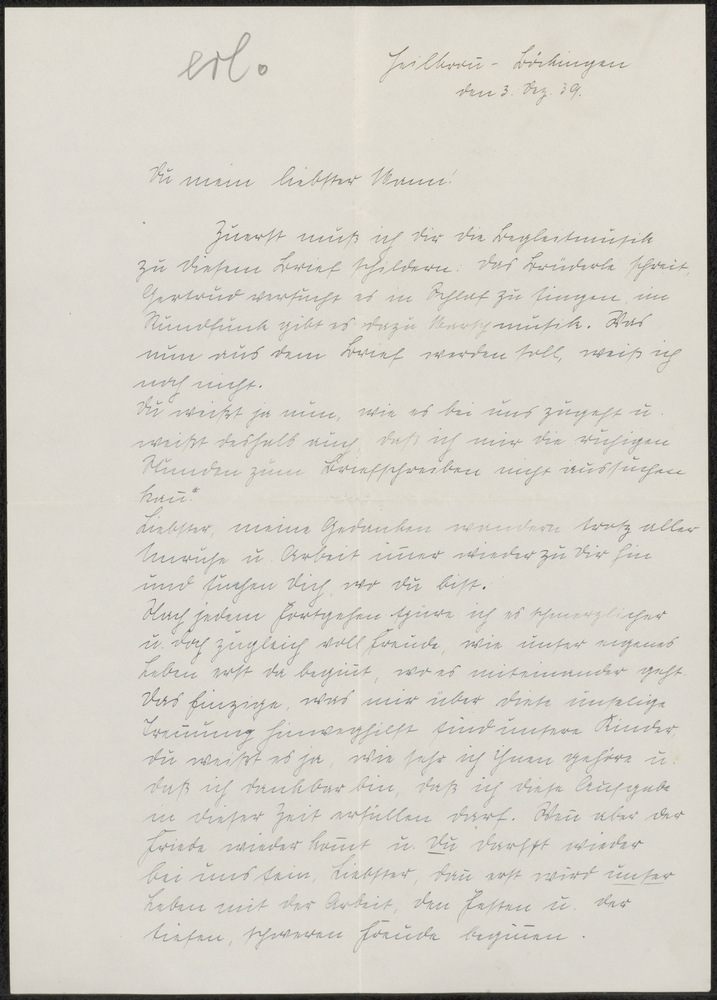 erl.
Heilbroñ - Böckingen
den 3. Dez. 39.
Du mein liebster Mann!
Zuerst muß ich dir die Begleitmusik
zu diesem Brief schildern: das Brüderle schreit,
Gertrud versucht es in Schlaf zu singen, im
Rundfunk gibt es dazu Marschmusik. Was
nun aus dem Brief werden soll, weiß ich
noch nicht.
Du weißt ja nun, wie es bei uns zugeht u.
weißt deshalb auch, daß ich mir die ruhigen
Stunden zum Briefschreiben nicht aussuchen
kañ.
Liebster, meine Gedanken wandern trotz aller
Unruhe u. Arbeit im̃er wieder zu Dir hin
und suchen Dich, wo Du bist.
Nach jedem Fortgehen spüre ich es schmerzlicher
u. doch zugleich voll Freude, wie unser eigenes
Leben erst da begiñt, wo es miteinander geht.
Das Einzige, was mir über diese unselige
Trennung hinweghilft sind unsere Kinder,
Du weißt es ja, wie sehr ich ihnen gehöre u.
daß ich dankbar bin, daß ich diese Aufgabe
in dieser Zeit erfüllen darf. Weñ aber der
Friede wieder kom̃t u. Du darfst wieder
bei uns sein, Liebster, dañ erst wird unser
Leben mit der Arbeit, den Festen u. der
tiefen, schweren Freude begiñen.